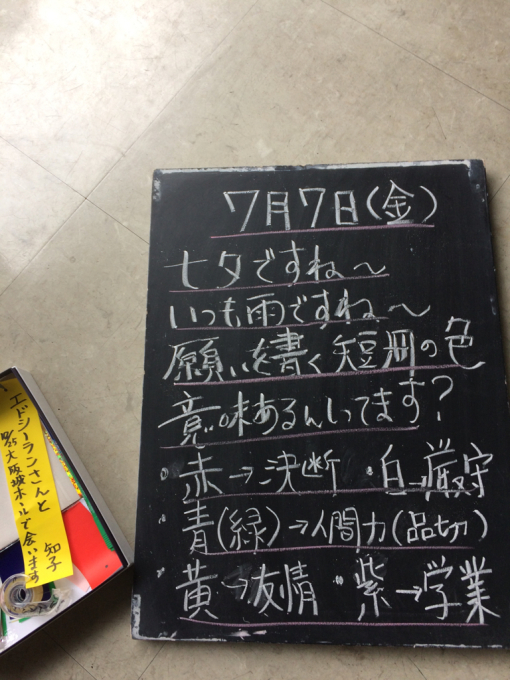 7月7日(金)
七夕ですね〜
いつも雨ですね〜
願いを書く短冊の色
意味あるんしってます?
・赤→決断 ・白→厳守
・青(緑)→人間力(品切)
黄→友情 ・紫→学業
エドシーランさんと
10/25大阪城ホールで会います
知子